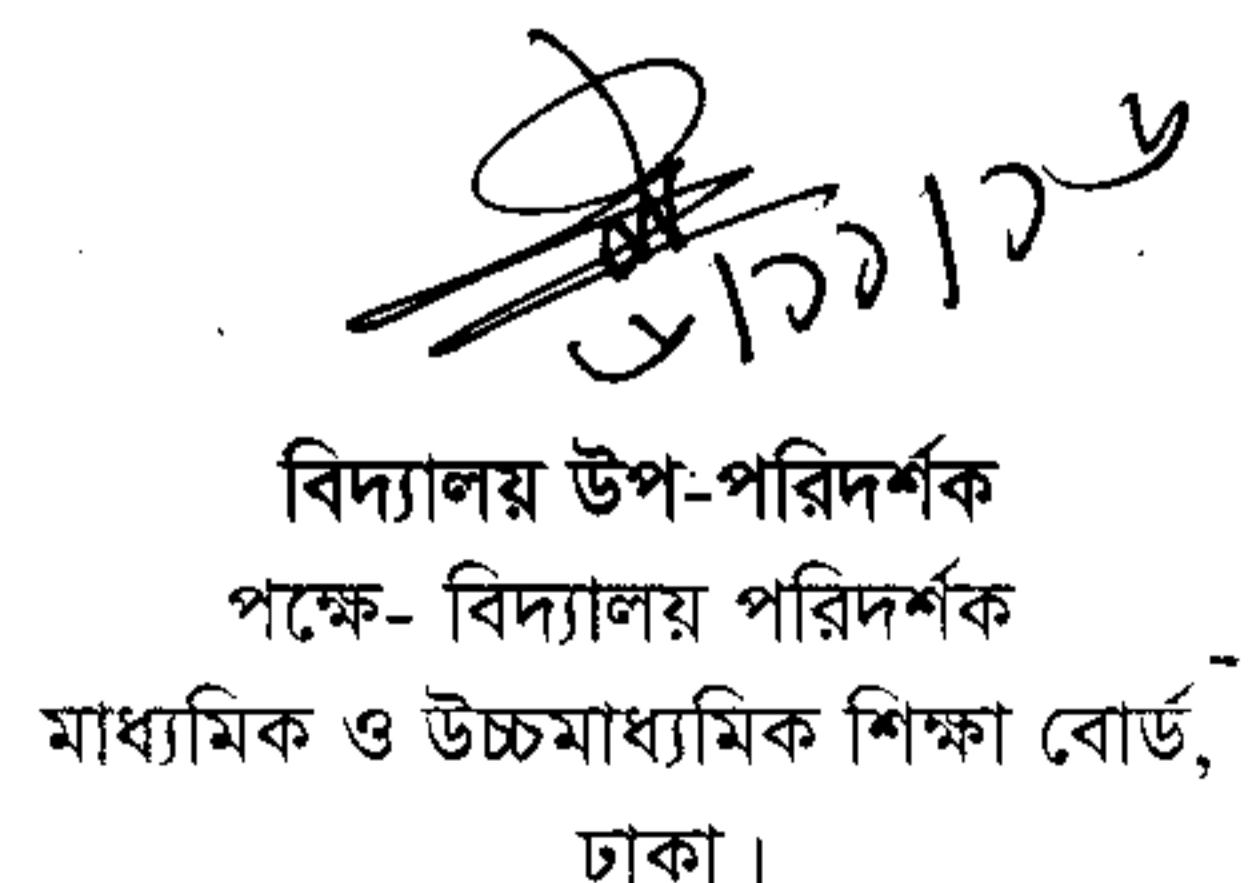 ৮।১১।১৬
বিদ্যালয় উপ-পরিদর্শক
পক্ষে- বিদ্যালয় পরিদর্শক
মাধ্যমিক ও উচ্চমাধ্যমিক শিক্ষা বোর্ড,
ঢাকা।